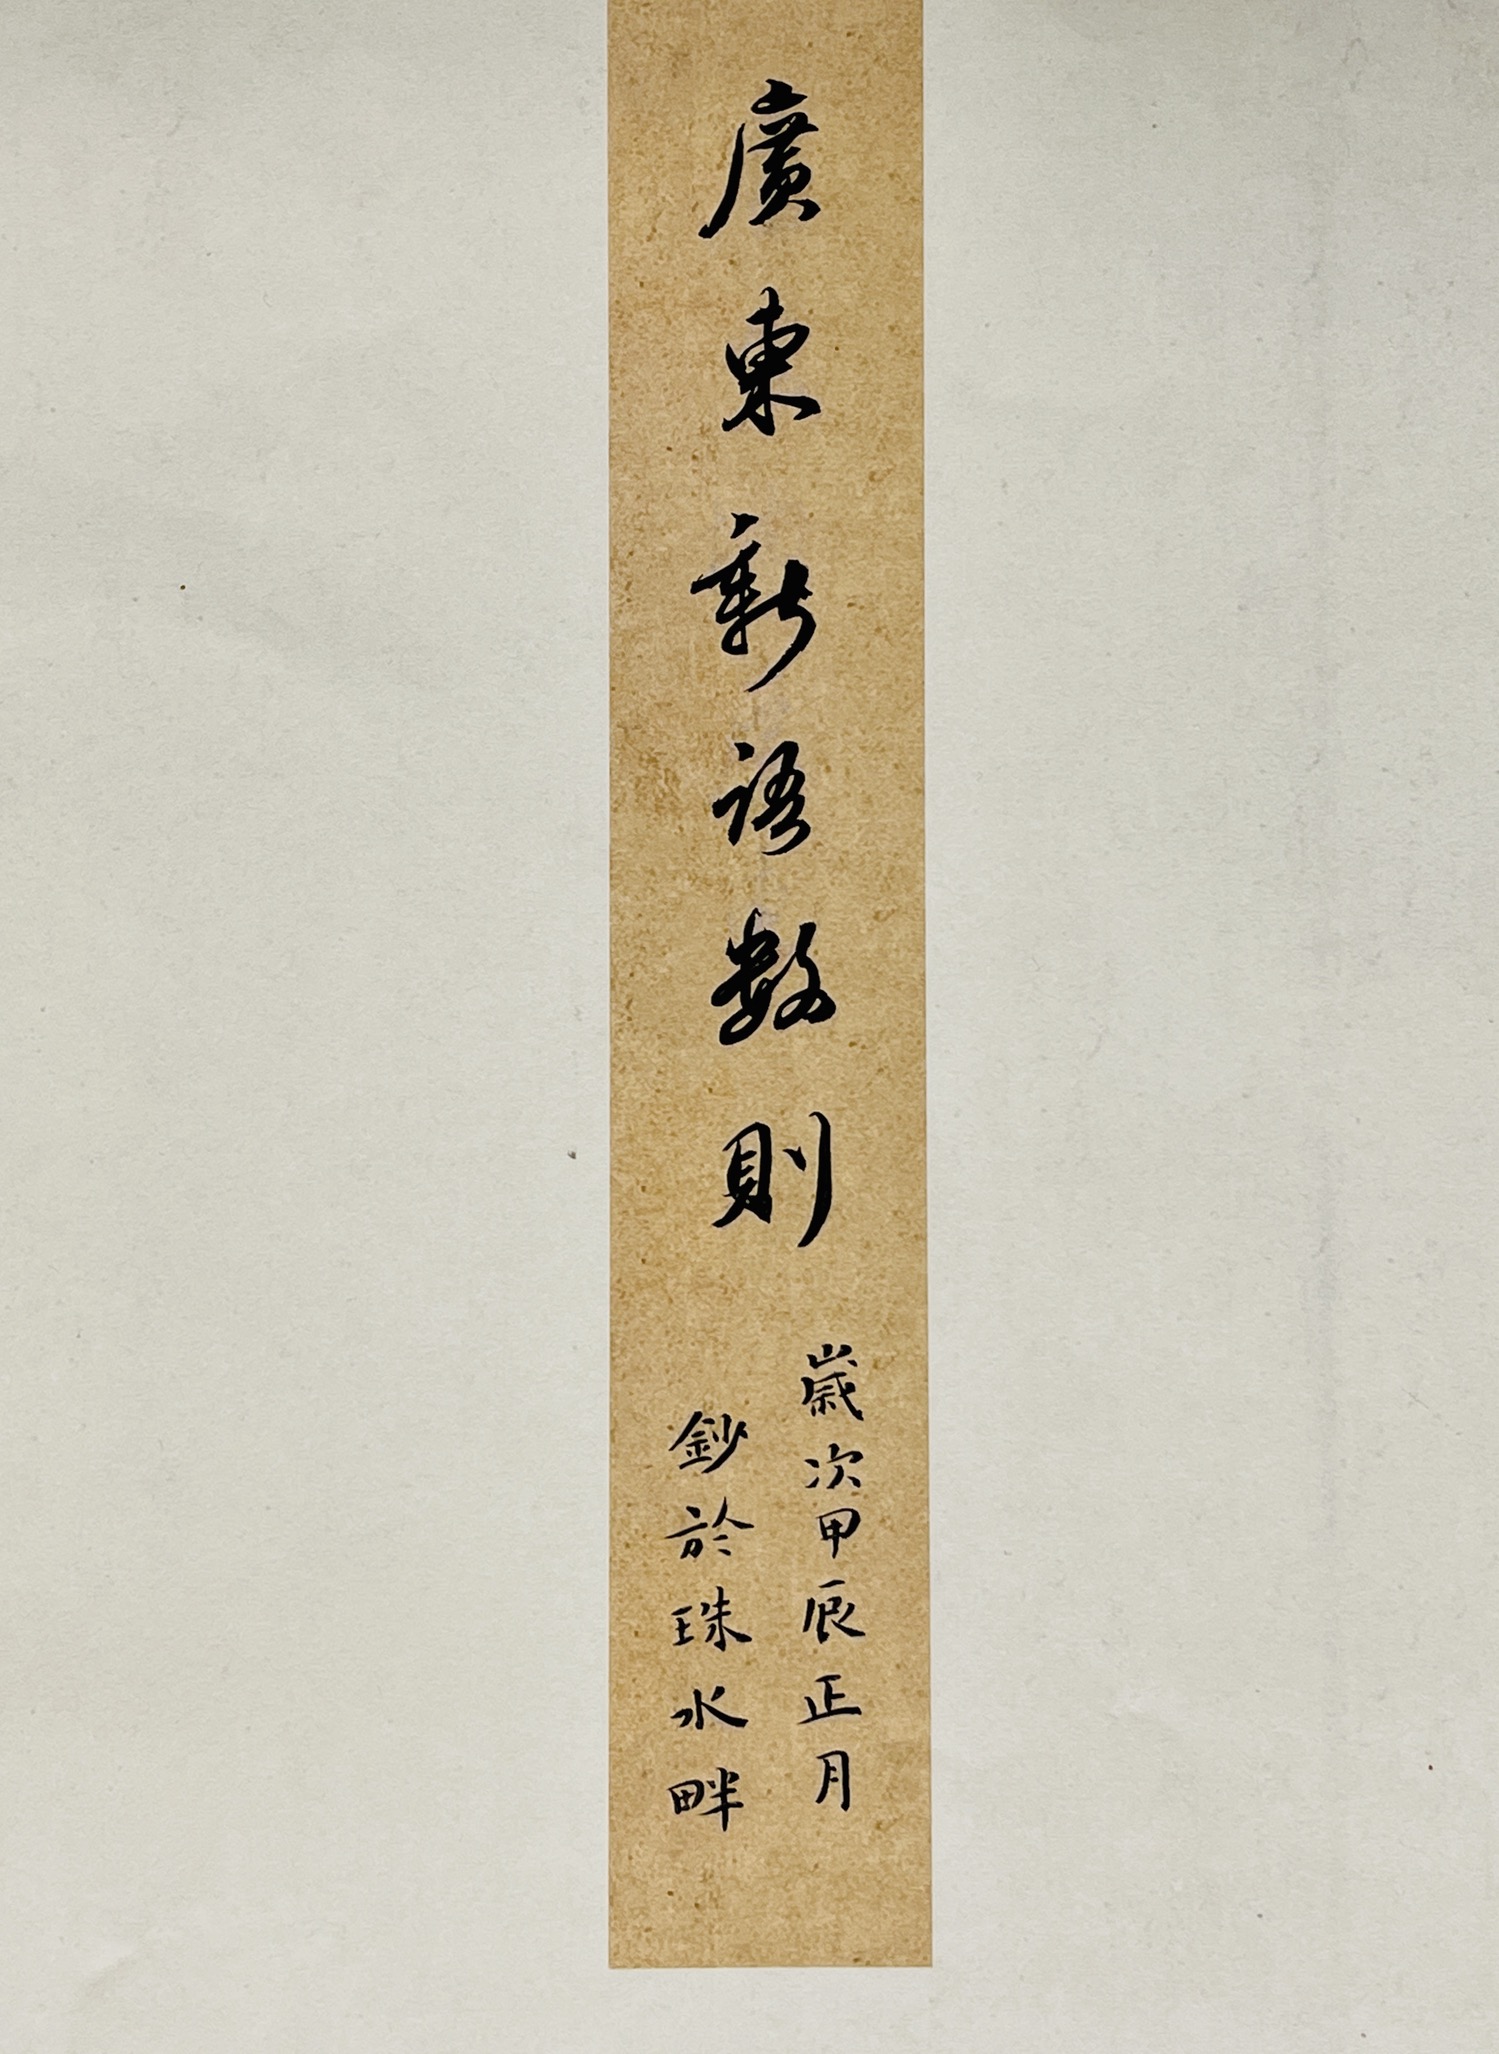 廣東新語數則
歲次甲辰正月
鈔於珠水畔